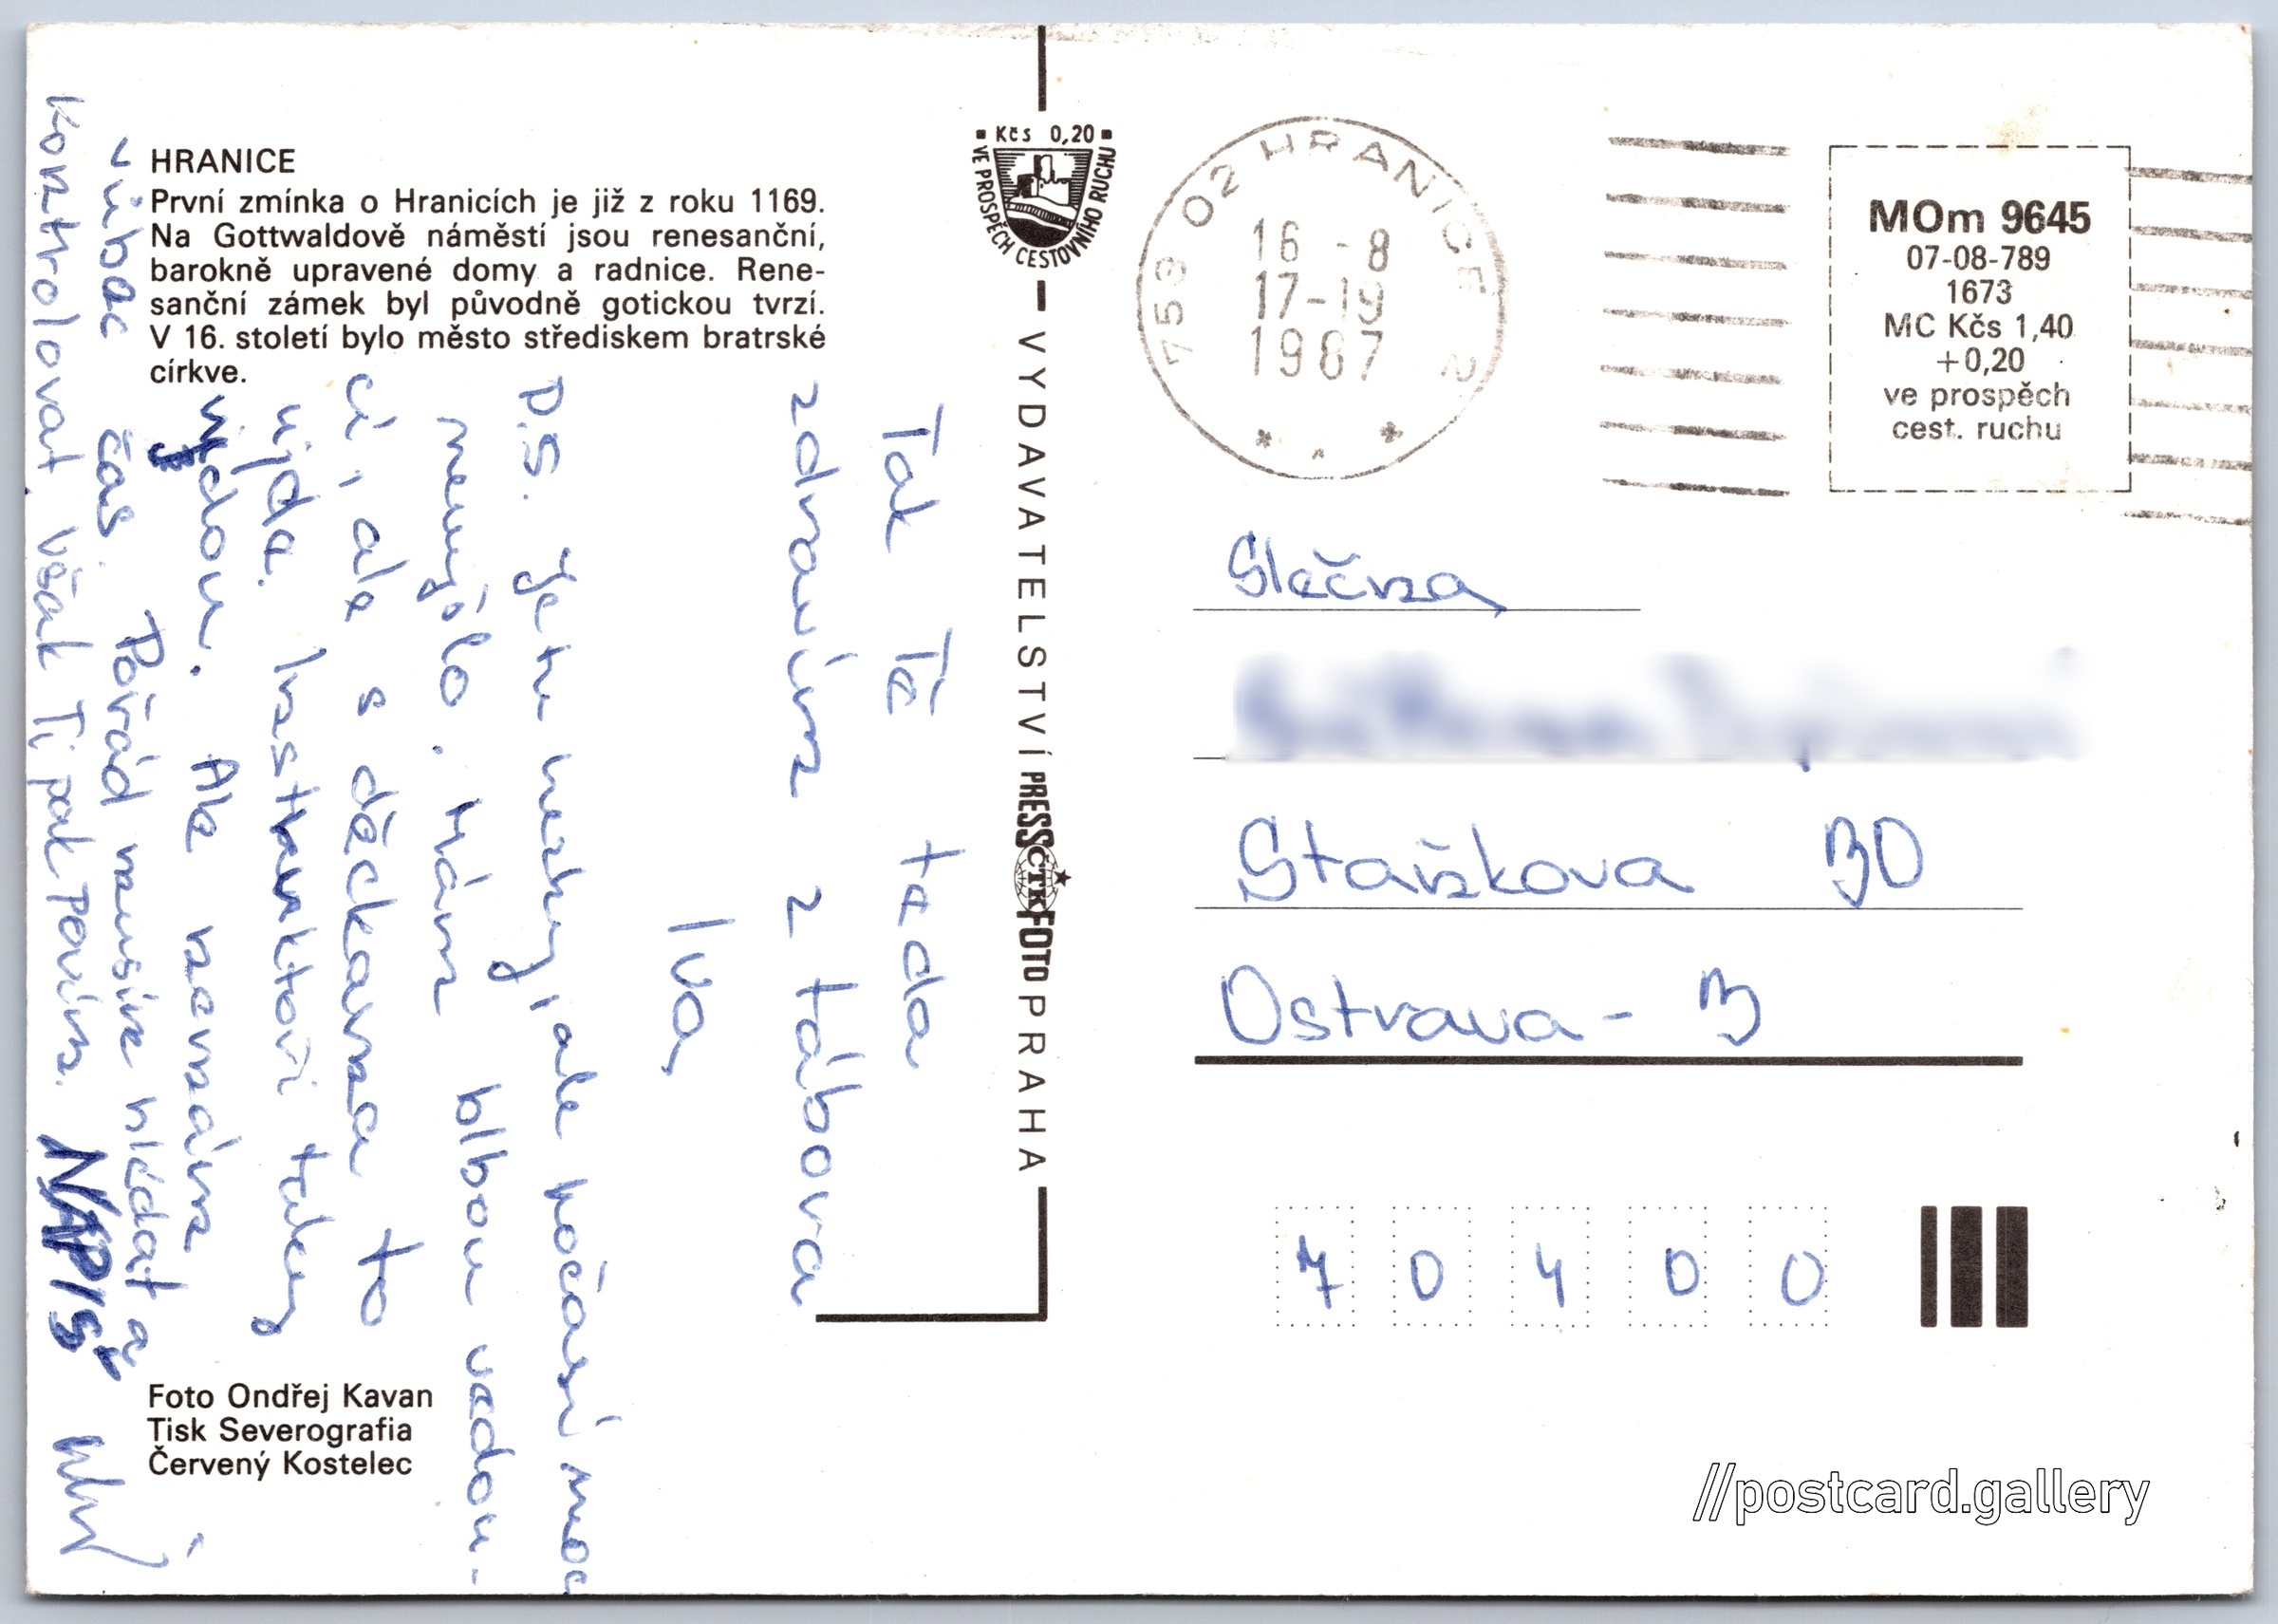 HRANICE
První zmínka o Hranicích je již z roku 1169.
Na Gottwaldově náměstí jsou renesanční,
barokně upravené domy a radnice. Rene-
sanční zámek byl původně gotickou tvrzí.
V 16. století bylo město střediskem bratrské
církve.
Tak Tě teda
zdravím z tábora
Iva
P.S. Je tu hezky, ale počasí moc
nemyslo. Mám blbou vedou-
cí, ale s děckama to
ujda. Instruktoři taky
ujdou. Ale nemám
vůbec čas. Pořád musím hlídat a
kontrolovat, však Ti pak povím. NAPIŠ
Foto Ondřej Kavan
Tisk Severografia
Červený Kostelec
Kčs 0,20
VE PROSPĚCH CESTOVNÍHO RUCHU
VYDAVATELSTVÍ PRESSČTKFOTO PRAHA
753 02 HRANICE 2
16 -8
17-19
1987
MOm 9645
07-08-789
1673
MC Kčs 1,40
+0,20
ve prospěch
cest. ruchu
Slečna
Staňkova 30
Ostrava - 3
70400
//postcard.gallery